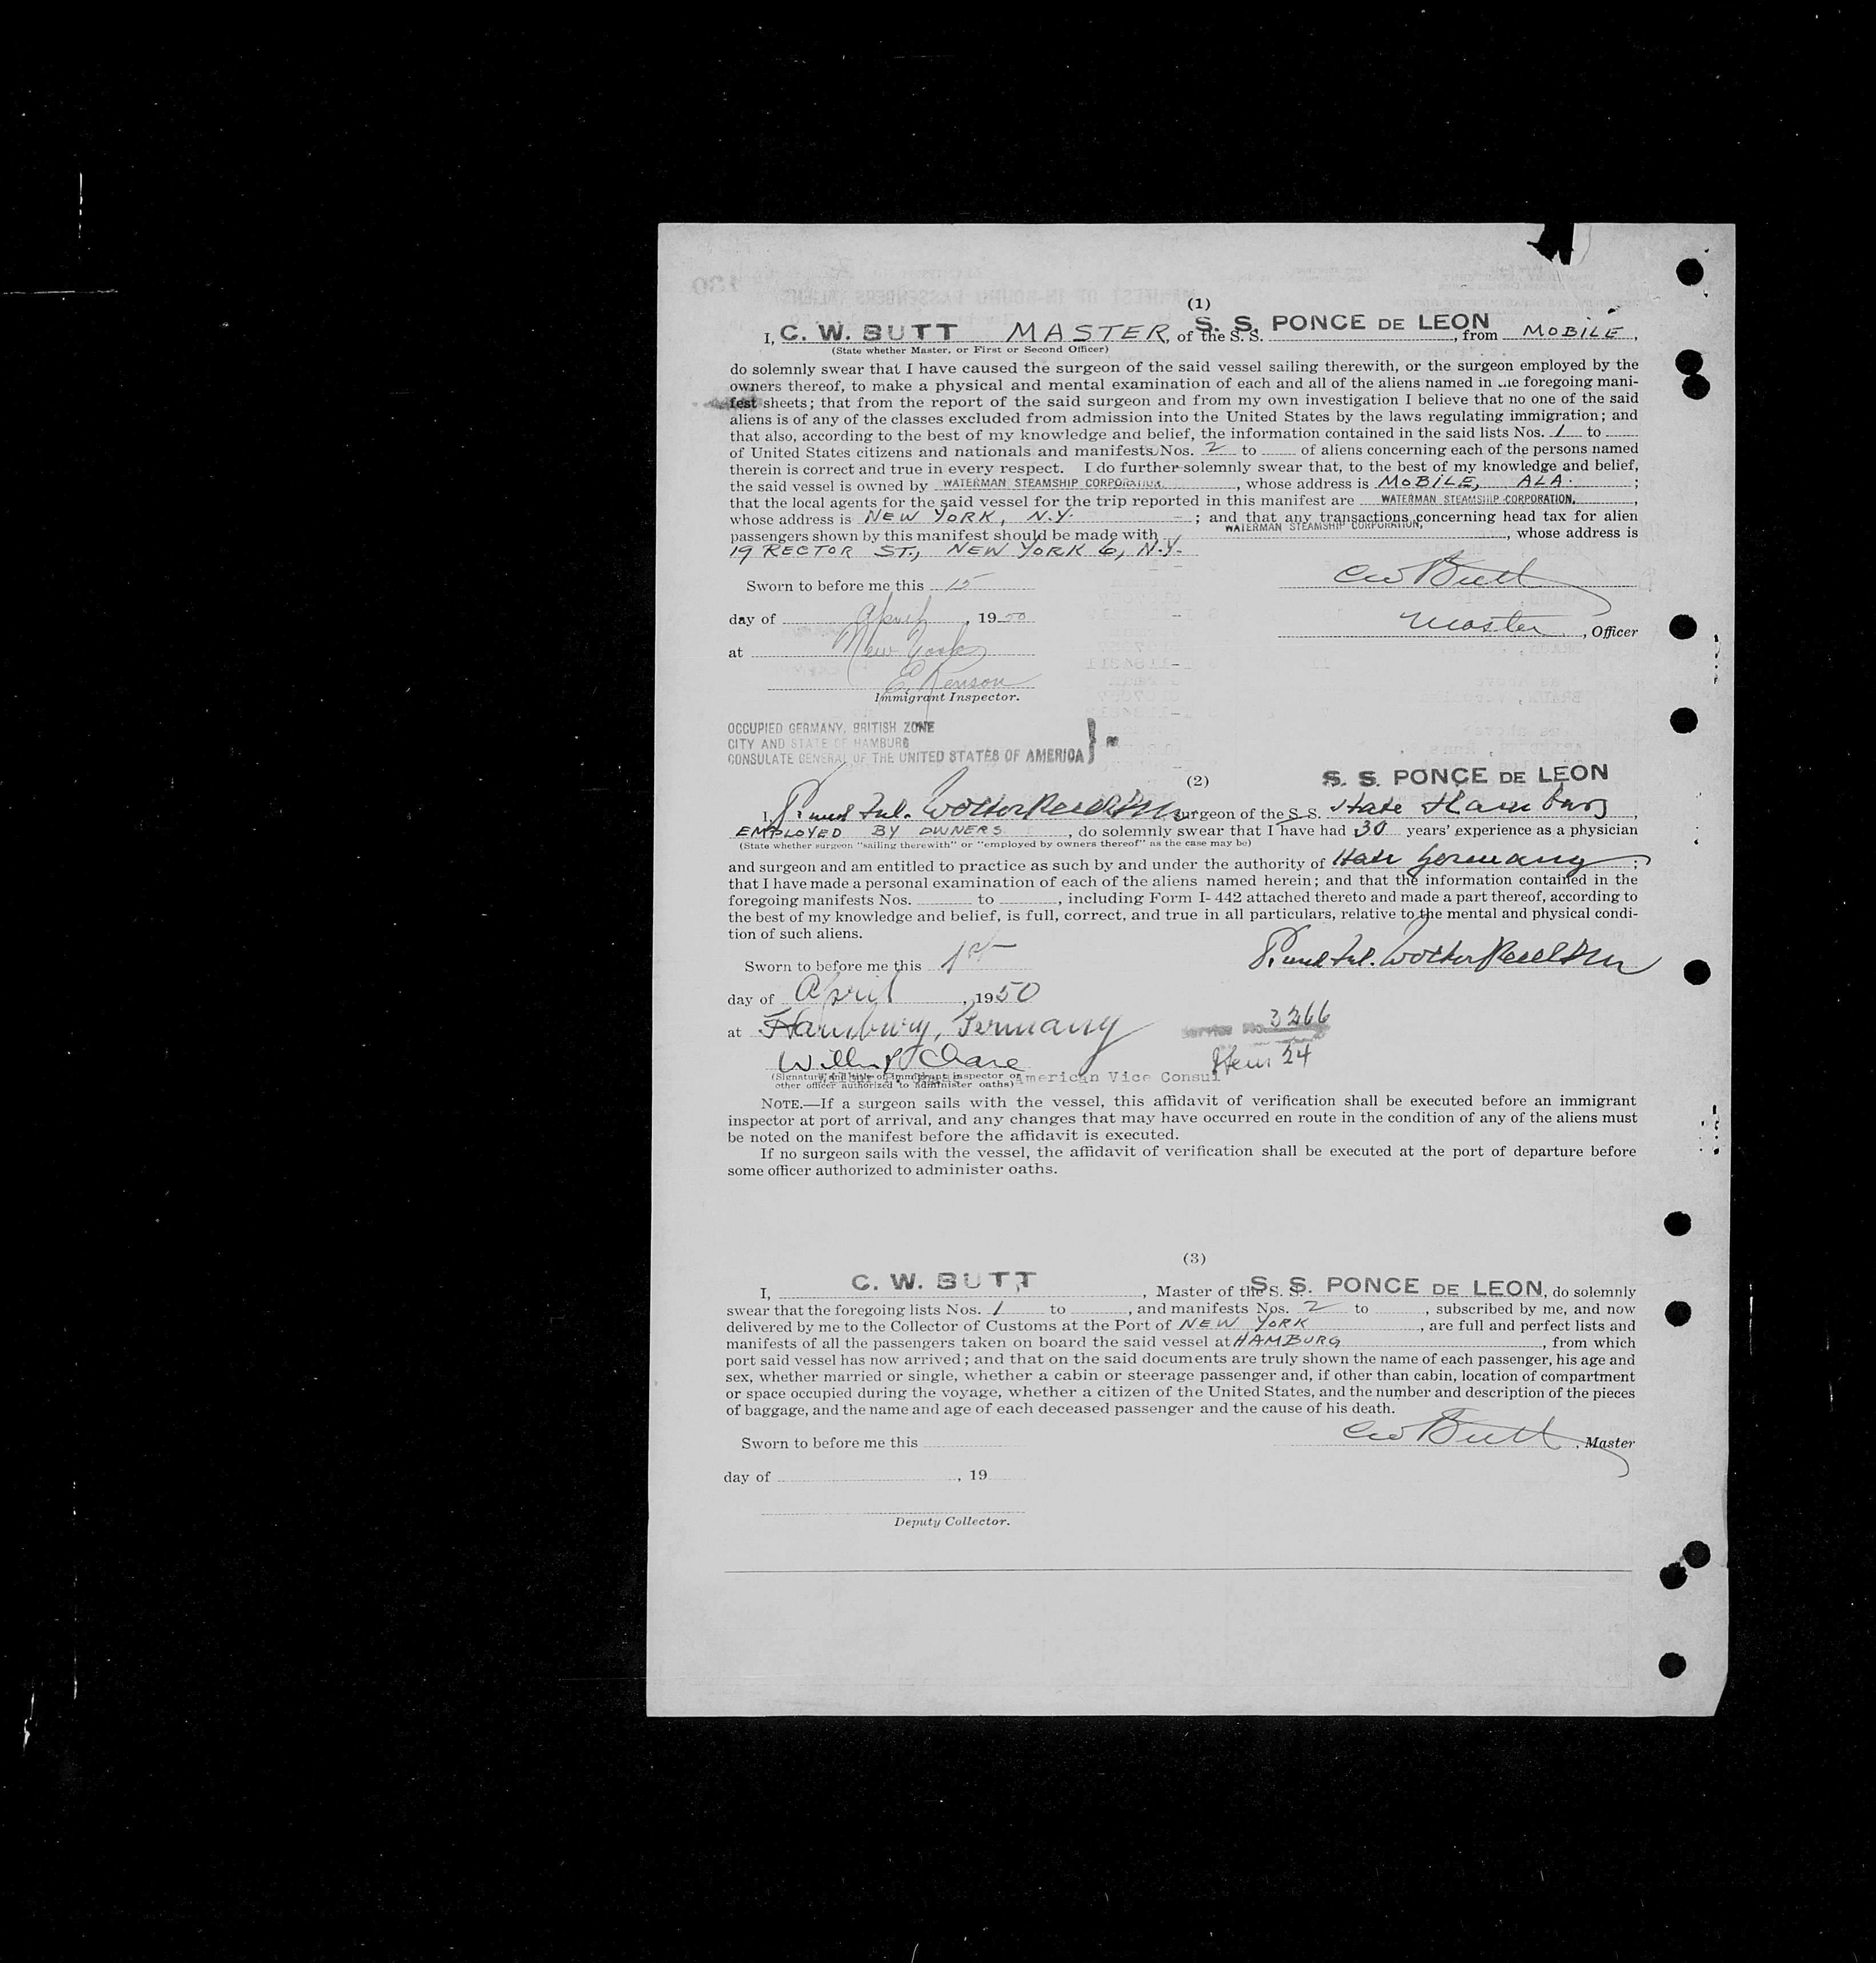 (1)
I, C. W. BUTT MASTER, of the S. S. S. S. PONCE DE LEON, from MOBILE,
(State whether Master, or First or Second Officer)
do solemnly swear that I have caused the surgeon of the said vessel sailing therewith, or the surgeon employed by the
owners thereof, to make a physical and mental examination of each and all of the aliens named in the foregoing mani-
fest sheets; that from the report of the said surgeon and from my own investigation I believe that no one of the said
aliens is of any of the classes excluded from admission into the United States by the laws regulating immigration; and
that also, according to the best of my knowledge and belief, the information contained in the said lists Nos. 1 to
of United States citizens and nationals and manifests Nos. 2 to of aliens concerning each of the persons named
therein is correct and true in every respect. I do further solemnly swear that, to the best of my knowledge and belief,
the said vessel is owned by WATERMAN STEAMSHIP CORPORATION, whose address is MOBILE, ALA. ;
that the local agents for the said vessel for the trip reported in this manifest are WATERMAN STEAMSHIP CORPORATION,
whose address is NEW YORK, N.Y. ; and that any transactions concerning head tax for alien
passengers shown by this manifest should be made with WATERMAN STEAMSHIP CORPORATION, whose address is
19 RECTOR ST., NEW YORK 6, N.Y.
Sworn to before me this 15
CW Butt
day of April, 1950
Master, Officer
at New York
E. Renson
Immigrant Inspector.
OCCUPIED GERMANY, BRITISH ZONE
CITY AND STATE OF HAMBURG
CONSULATE GENERAL OF THE UNITED STATES OF AMERICA
(2)
S. S. PONCE DE LEON
I, surgeon of the S. S. State Hamburg,
EMPLOYED BY OWNERS, do solemnly swear that I have had 30 years' experience as a physician
(State whether surgeon "sailing therewith" or "employed by owners thereof" as the case may be)
and surgeon and am entitled to practice as such by and under the authority of State Germany ;
that I have made a personal examination of each of the aliens named herein; and that the information contained in the
foregoing manifests Nos. to , including Form I-442 attached thereto and made a part thereof, according to
the best of my knowledge and belief, is full, correct, and true in all particulars, relative to the mental and physical condi-
tion of such aliens.
Sworn to before me this 1st
day of April, 1950
at Hamburg, Germany
Service No. 3266
Item 24
(Signature and title of immigrant inspector or
other officer authorized to administer oaths) American Vice Consul
NOTE.—If a surgeon sails with the vessel, this affidavit of verification shall be executed before an immigrant
inspector at port of arrival, and any changes that may have occurred en route in the condition of any of the aliens must
be noted on the manifest before the affidavit is executed.
If no surgeon sails with the vessel, the affidavit of verification shall be executed at the port of departure before
some officer authorized to administer oaths.
(3)
I, C. W. BUTT, Master of the S. S. S. S. PONCE DE LEON, do solemnly
swear that the foregoing lists Nos. 1 to , and manifests Nos. 2 to , subscribed by me, and now
delivered by me to the Collector of Customs at the Port of NEW YORK, are full and perfect lists and
manifests of all the passengers taken on board the said vessel at HAMBURG, from which
port said vessel has now arrived; and that on the said documents are truly shown the name of each passenger, his age and
sex, whether married or single, whether a cabin or steerage passenger and, if other than cabin, location of compartment
or space occupied during the voyage, whether a citizen of the United States, and the number and description of the pieces
of baggage, and the name and age of each deceased passenger and the cause of his death.
Sworn to before me this
CW Butt, Master
day of , 19
Deputy Collector.